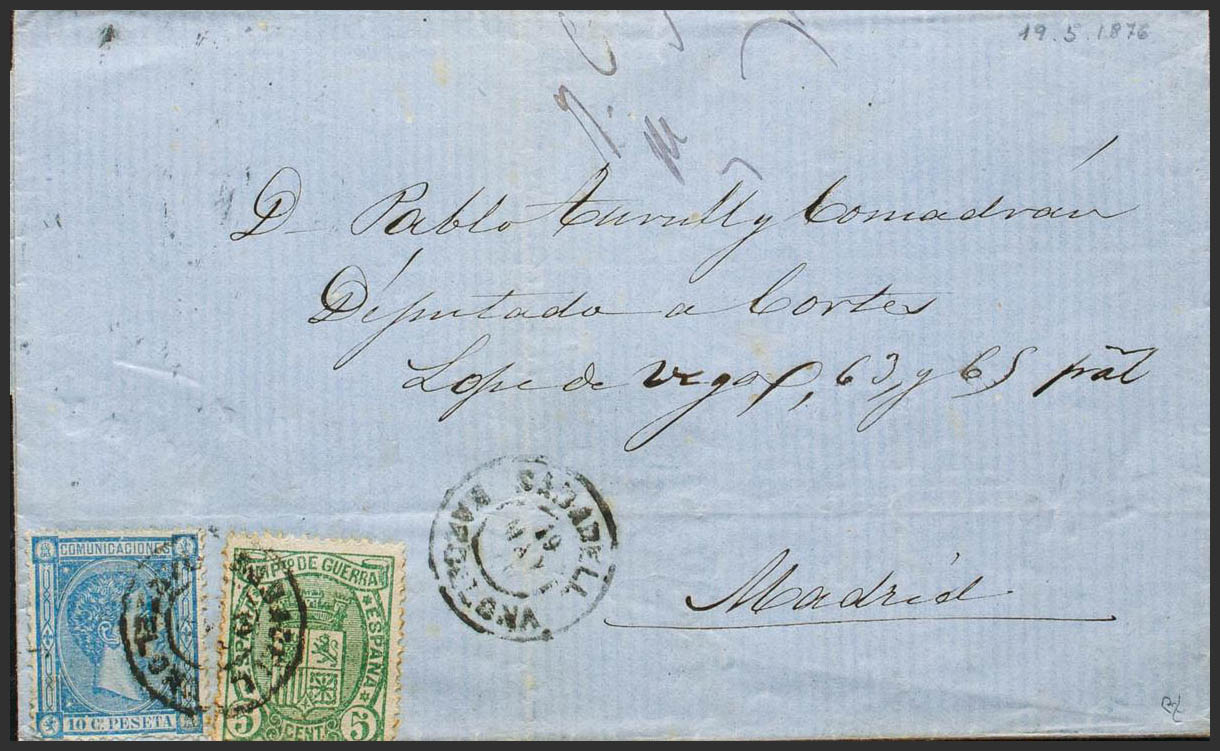 19.5.1876
D. Pablo Turull y Comadrán
Diputado a Cortes
Lope de Vega, 63, y 65 pral
Madrid
SABADELL
19
MAY
BARCELONA
COMUNICACIONES
10 C. PESETA
IMPTO DE GUERRA
ESPAÑA
5 CENT. 5